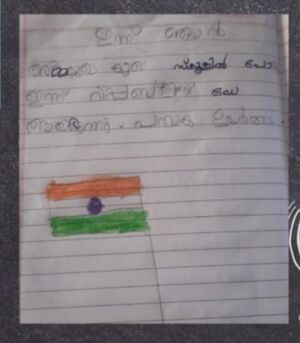 ഇന്ന് ഞാൻ
അമ്മയുടെ കൂടെ സ്കൂളിൽ പോ
ഇന്ന് റിപ്പബ്ലിക്ക് ഡേ
ആയിരുന്നു. പതാക ഉയർത്തി.